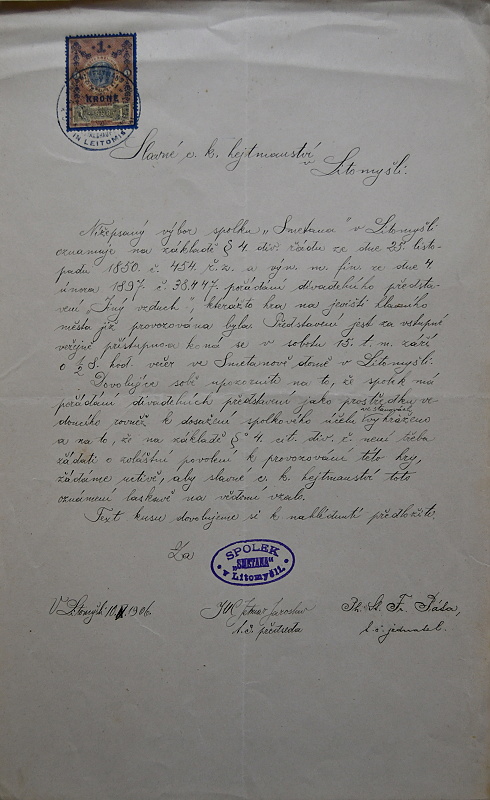 1
KRONE
IN LEITOMIS
Slavné c. k. hejtmanství
v Litomyšli.
Nížepsaný výbor spolku „Smetana" v Litomyšli
oznamuje na základě § 4. div. řádu ze dne 25. listo-
padu 1850. č. 454. ř. z. a výn. m. fin. ze dne 4.
února 1897. č. 38.447. pořádání divadelního předsta-
vení „Jiný vzduch", kterážto hra na jevišti hlavního
města již provozována byla. Představení jest za vstupné
veřejně přístupno a koná se v sobotu 15. t. m. září
o ½ 8. hod. večer ve Smetanově domě v Litomyšli.
Dovolujíce sobě upozorniti na to, že spolek má
pořádání divadelních představení jako prostředku ve-
doucího rovněž k dosažení spolkového účelu ve stanovách vyhrazeno
a na to, že na základě § 4. cit. div. ř. není třeba
žádati o zvláštní povolení k provozování této hry,
žádáme uctivě, aby slavné c. k. hejtmanství toto
oznámení laskavě na vědomí vzalo.
Text kusu dovolujeme si k nahlédnutí předložiti.
Za
SPOLEK
„SMETANA"
v Litomyšli.
V Litomyšli 10. 1906.
JUC. Jaroslav
t. č. předseda
Ph. St. F. Páta,
t. č. jednatel.